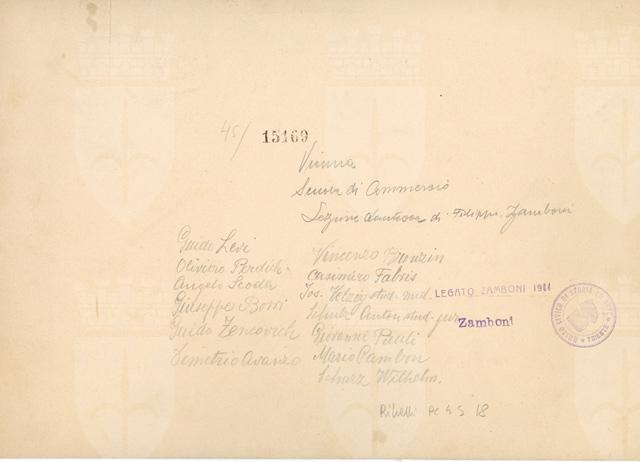 45/ 15169
Vienna
Scuola di Commercio
Lezione dantesca di Filippo Zamboni
Guido Levi
Oliviero
Angelo Scoda
Giuseppe Borri
Guido Zencovich
Demetrio Avanzo
Vincenzo Bronzin
Casimiro Fabris
Jos. stud. med.
Schulz Anton stud. jur.
Giovanni Pauli
Mario Pambon
Schurz Wilhelm.
LEGATO ZAMBONI 1914
Zamboni
CIVICO MUSEO DI STORIA ED ARTE
TRIESTE
18